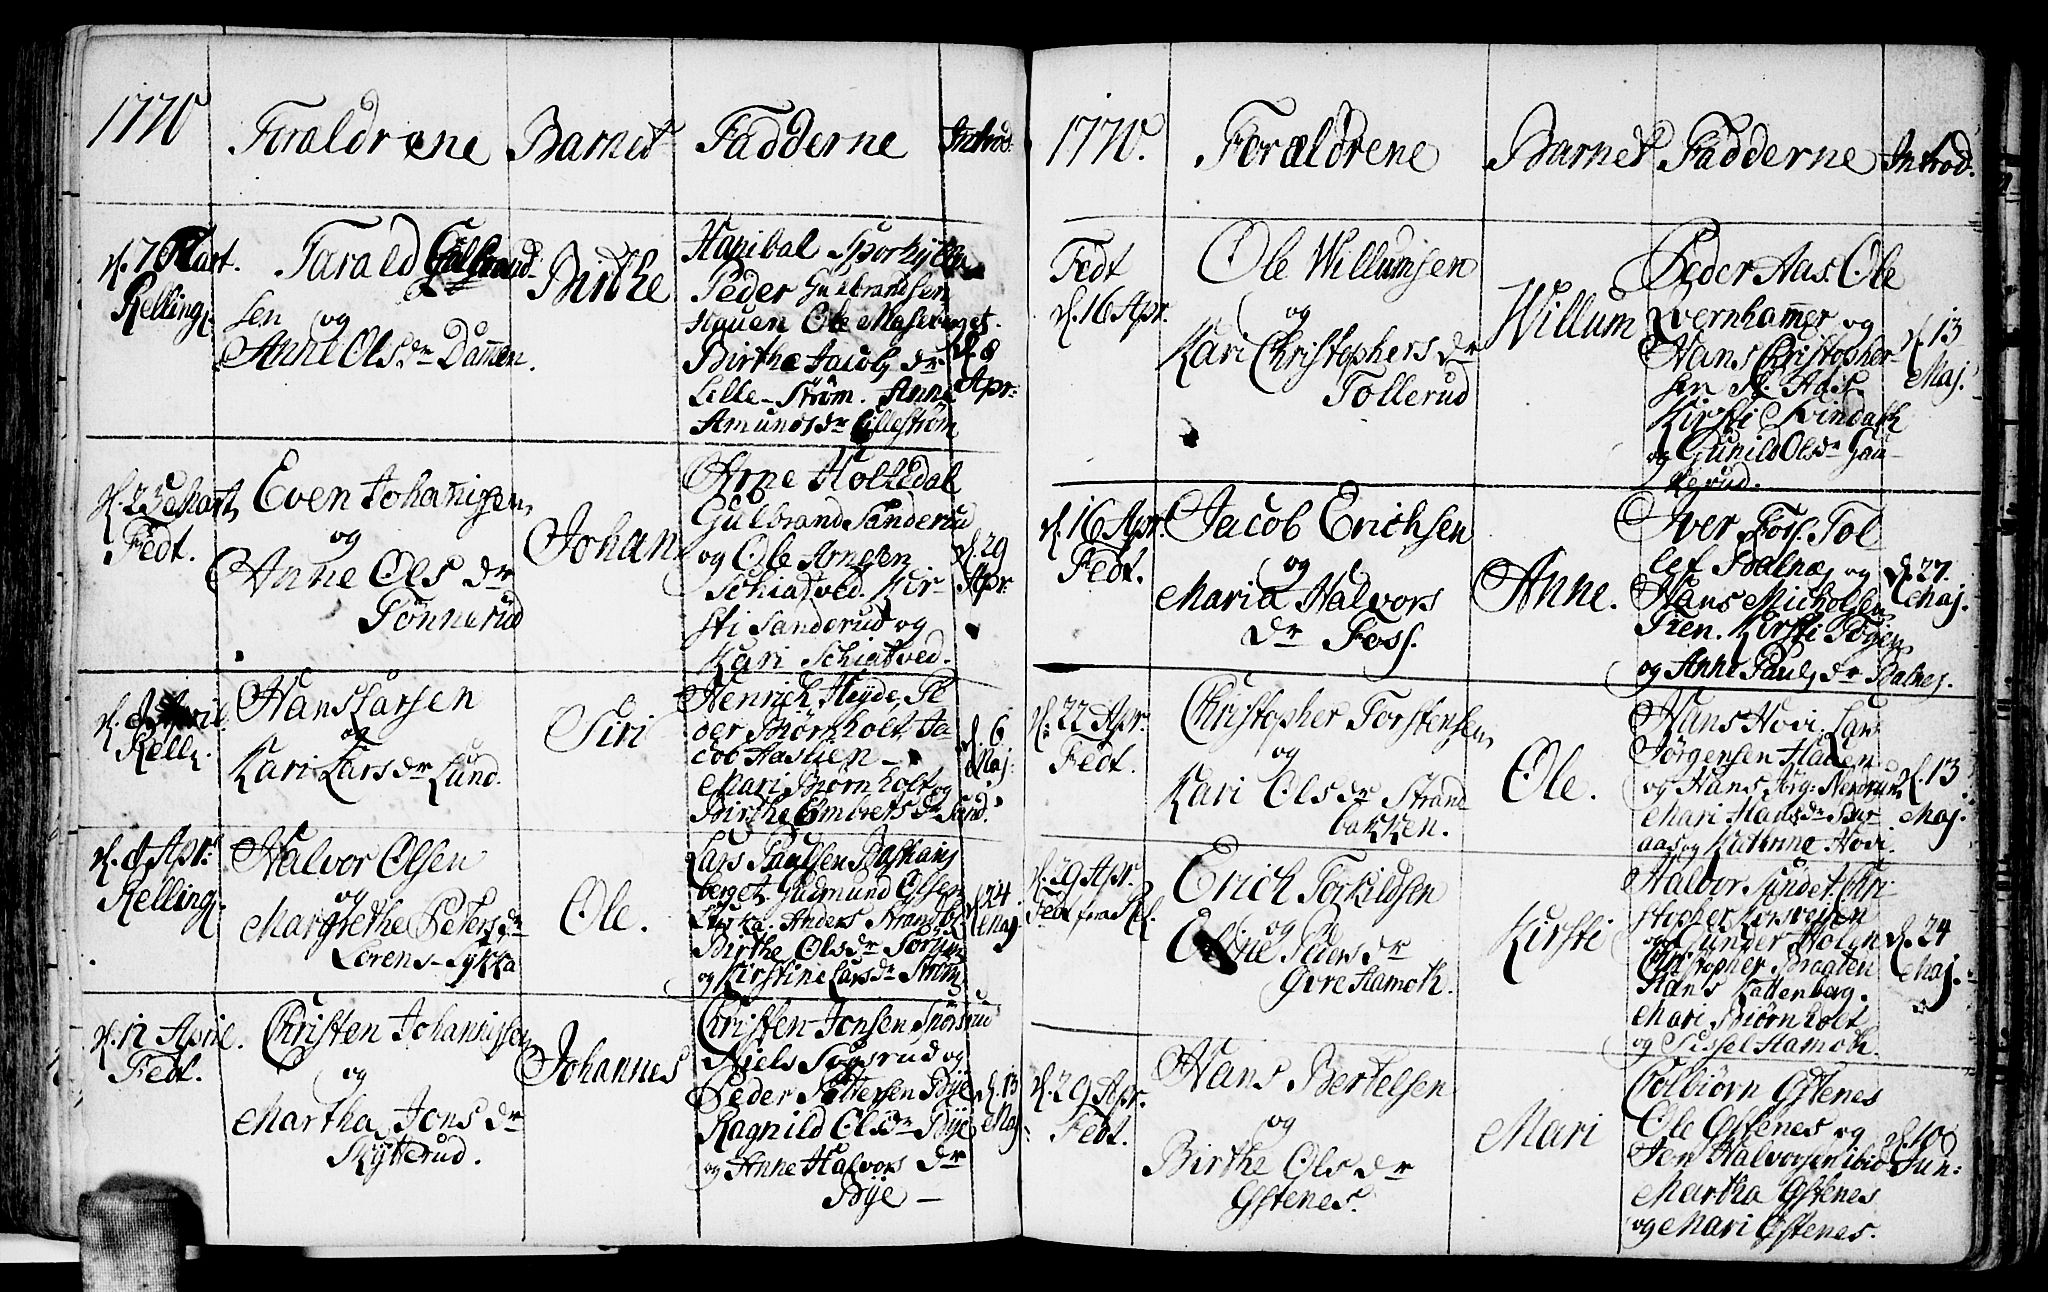 1770 Foraldrene Barnet Fadderne Introd.
d. 7 Mart.
Relling.
Tarald Gulbrand
sen og
Anne Ols dr Dammen.
Birthe
Hanibal
Peder Gulbrandsen
Hauen Ole Maseberget.
Birthe Jacobs dr
Lille-Strøm. Anne
Amunds dr Lillestrøm
d. 8
Apr:
d. 25 Mart,
Fedt.
Even Johannisen,
og
Anne Ols dr
Tønnerud
Johan
Arne Holtedal
Gulbrand Sanderud
og Ole Arnesen
Schiatved. Kir-
sti Sanderud og
Kari Schiatved.
d. 29
Apr.
Rell.
Hans Larsen
og
Kari Lars dr Lund.
Siri
Henrich Heyde, Pe
der Biørkholt, Ja
cob
Mari Biørnholt og
Birthe Embrets dr Lund.
d. 6
Maj.
d. 8 Apr:
Relling.
Halvor Olsen
og
Margrethe Peters dr
Lorens-Lykka
Ole.
Lars Paulsen
berget. Gudmund Olsen
Lykka. Anders Strandb
Birthe Ols dr Sørum
og Kirstine Lars dr Strøm
d. 24
Maj
d. 12 April.
Fedt.
Christen Johannissen
og
Martha Jons dr
Skytterud.
Johannes
Christen Jonsen
Niels og
Peder Pettersen Bye
Ragnild Ols dr Bye
og Anne Halvors dr
Bye –
d. 13
Maj
1770. Forældrene Barnet Fadderne Introd.
Fedt
d. 16 Apr.
Ole Willumsen
og
Kari Christophers dr
Tollerud
Willum
Peder Aas. Ole
Qvernhammer og
Hans Christopher-
sen
Kirsti
og Gunild Ols dr Gau-
kerud.
d. 13
Maj.
d. 16 Apr.
Fedt.
Jacob Erichsen
og
Maria Halvors
dr Foss.
Anne.
Iver Foss. Tol
lef Balnæ og
Hans Micholsen
Iren. Kirsti
og Anne Pauls dr Balnes.
d. 27.
Maj.
d. 22 Apr.
Fedt.
Christopher Torstensen,
og
Kari Ols dr Strand
bakken.
Ole.
Hans Hovi, Lars
Jørgensen
og Hans Jørg: Nerdrum
Mari Hans dr
aas og Kathrine Hovi.
d. 13
Maj.
d. 29 Apr.
Fedt fra Rel.
Erich Torkildsen
og
Eline Peders dr
Øvre Hamoth.
Kirsti
Halvor Sundet. Chri
stopher Korsveien
og Gunder Holen
Christopher Braaten
Hans Kattenbag.
Mari Biørnholt
og Sissel Hamoth.
d. 24
Maj.
d. 29 Apr.
Fedt.
Hans Bertelsen
og
Birthe Ols dr
Østenes.
Mari
Colbiørn Østenes
Ole Østenes og
Jen Halvorsen ibid
Martha Østenes
og Mari Østenes.
d. 10
Jun: